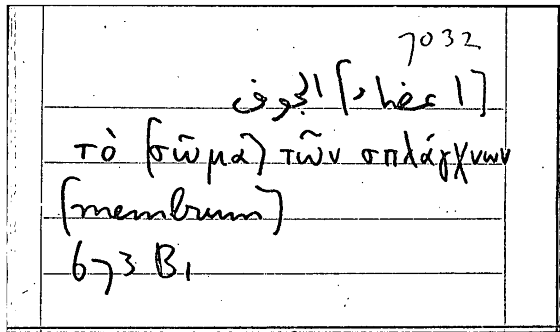 7032
[اعضاء] الجوف
τὸ [σῶμα] τῶν σπλάγχνων
[membrum]
673 B1